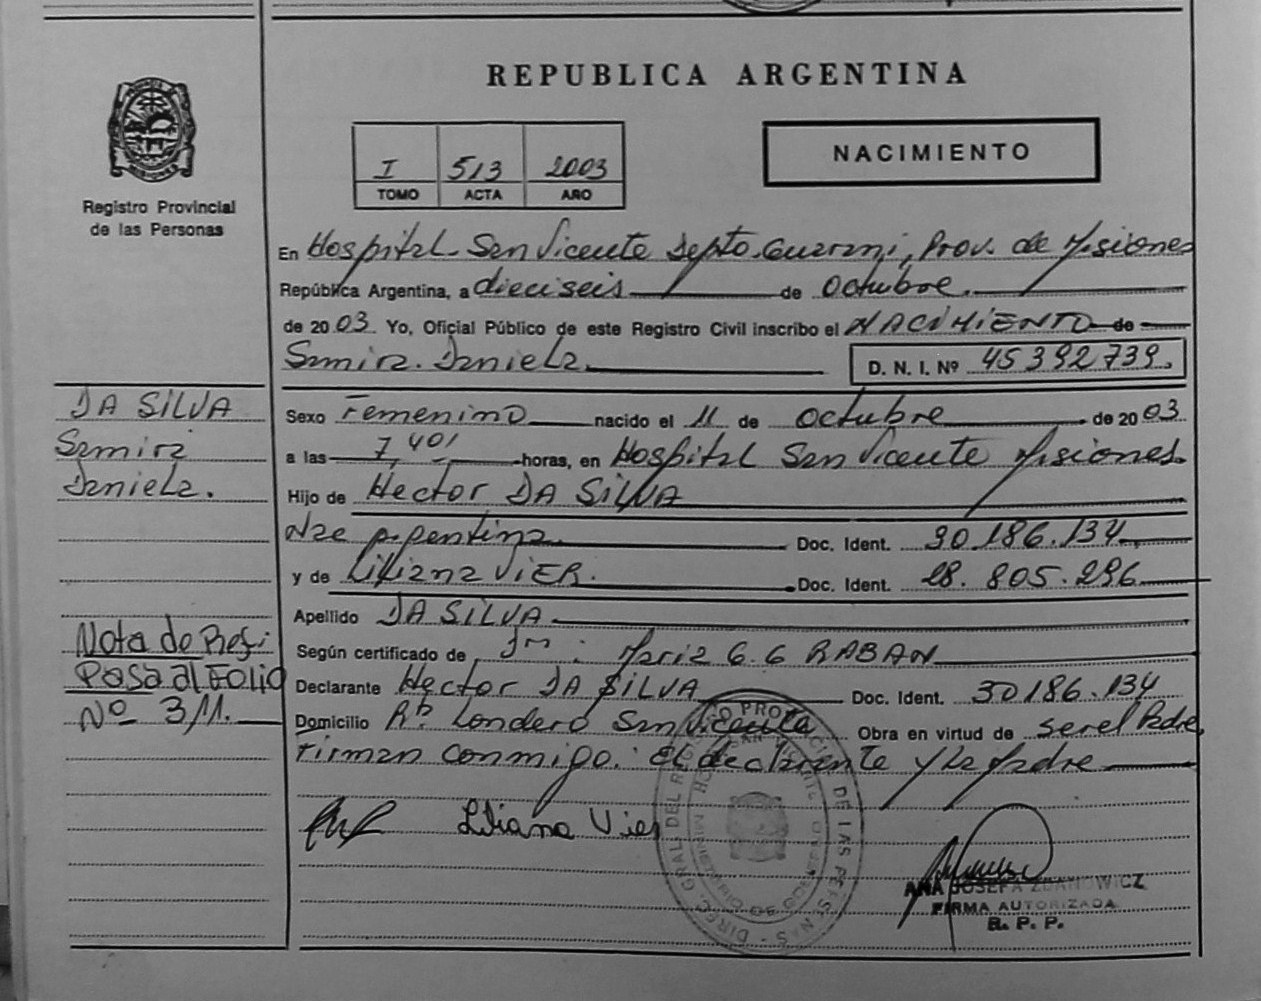 REPUBLICA ARGENTINA
I 513 2003
TOMO ACTA AÑO
NACIMIENTO
Registro Provincial
de las Personas
En Hospital San Vicente Depto. Guarani, Prov. de Misiones
República Argentina, a dieciseis de Octubre
de 2003 Yo, Oficial Público de este Registro Civil inscribo el NACIMIENTO de
Samira Daniela D. N. I. Nº 45392739.
DA SILVA
Samira
Daniela.
Sexo Femenino nacido el 11 de octubre de 2003
a las 7,40 horas, en Hospital San Vicente Misiones.
Hijo de Hector DA SILVA
Doc. Ident. 30.186.134
y de Liliana VIER. Doc. Ident. 28.805.296
Apellido DA SILVA
Nota de
Pasa al Folio
Nº 311.
Según certificado de Maria G. G RABAN
Declarante Hector DA SILVA Doc. Ident. 30186.134
Domicilio Londero San Vicente Obra en virtud de ser el Padre
Firman conmigo: El declarante y la Madre
Liliana Vier
ANA JOSEFA ZDANOWICZ
FIRMA AUTORIZADA
R. P. P.